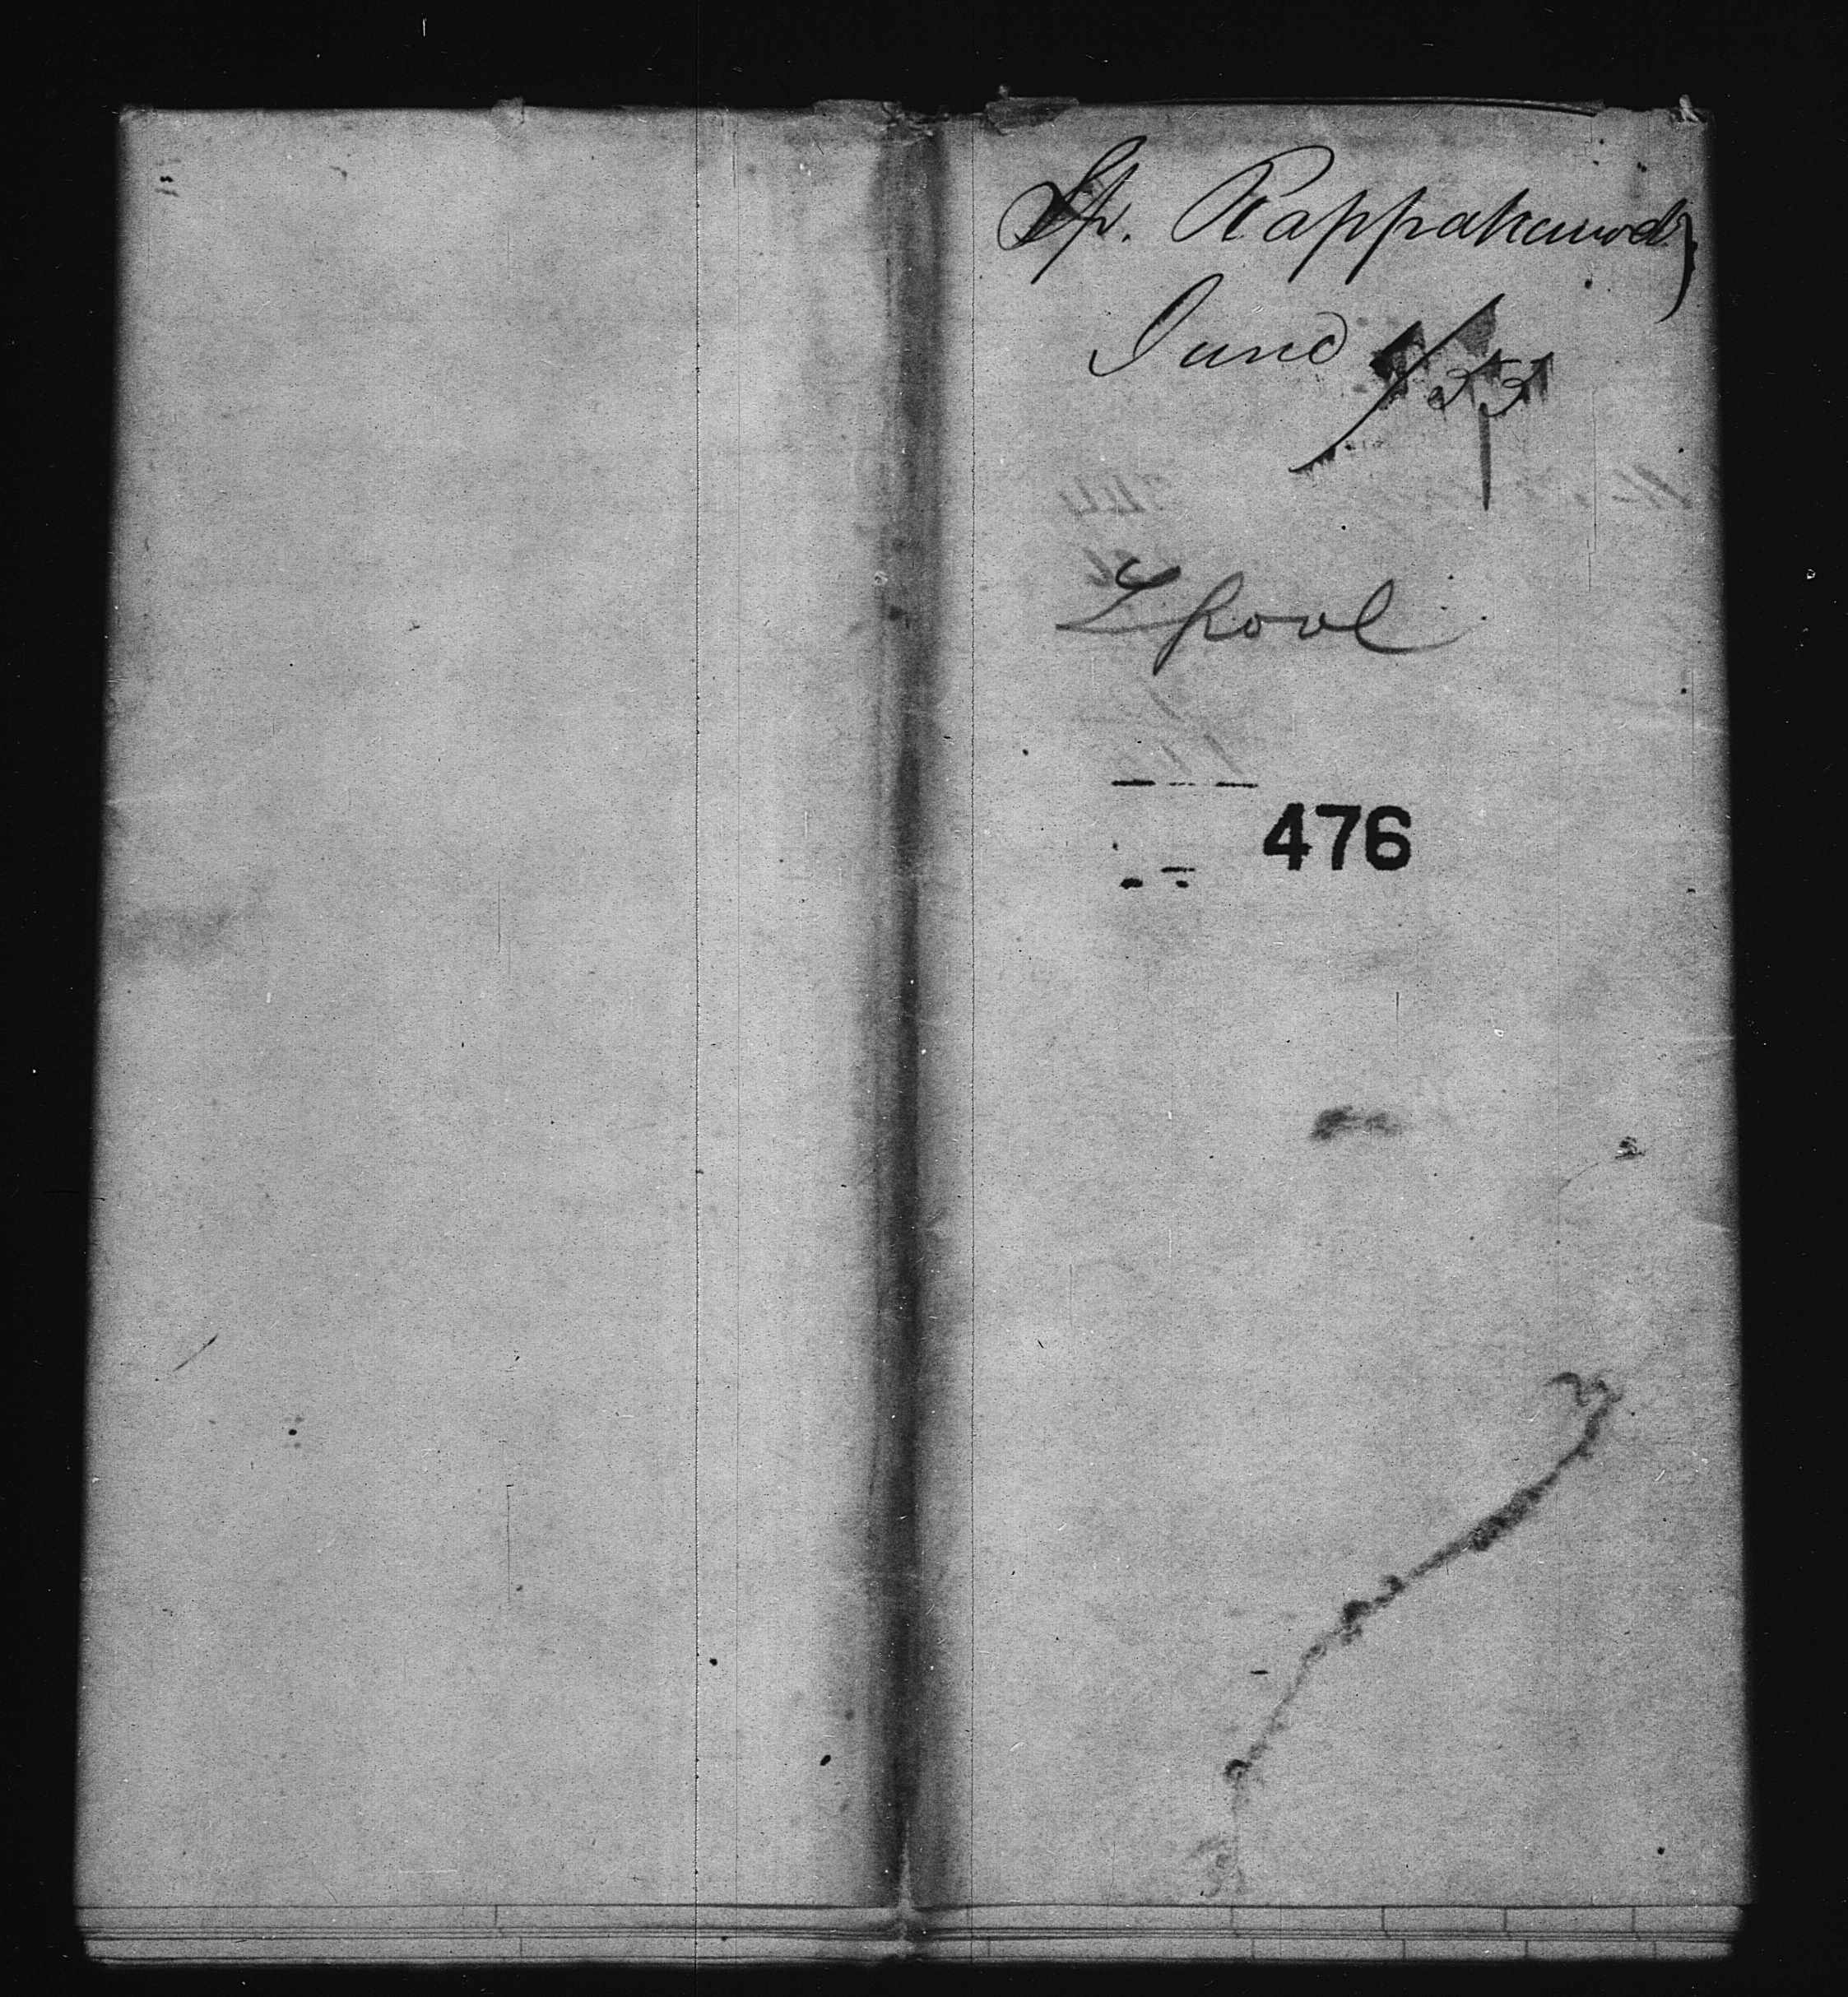 Sp. Rappahannock
June 1/53
Lpool
476